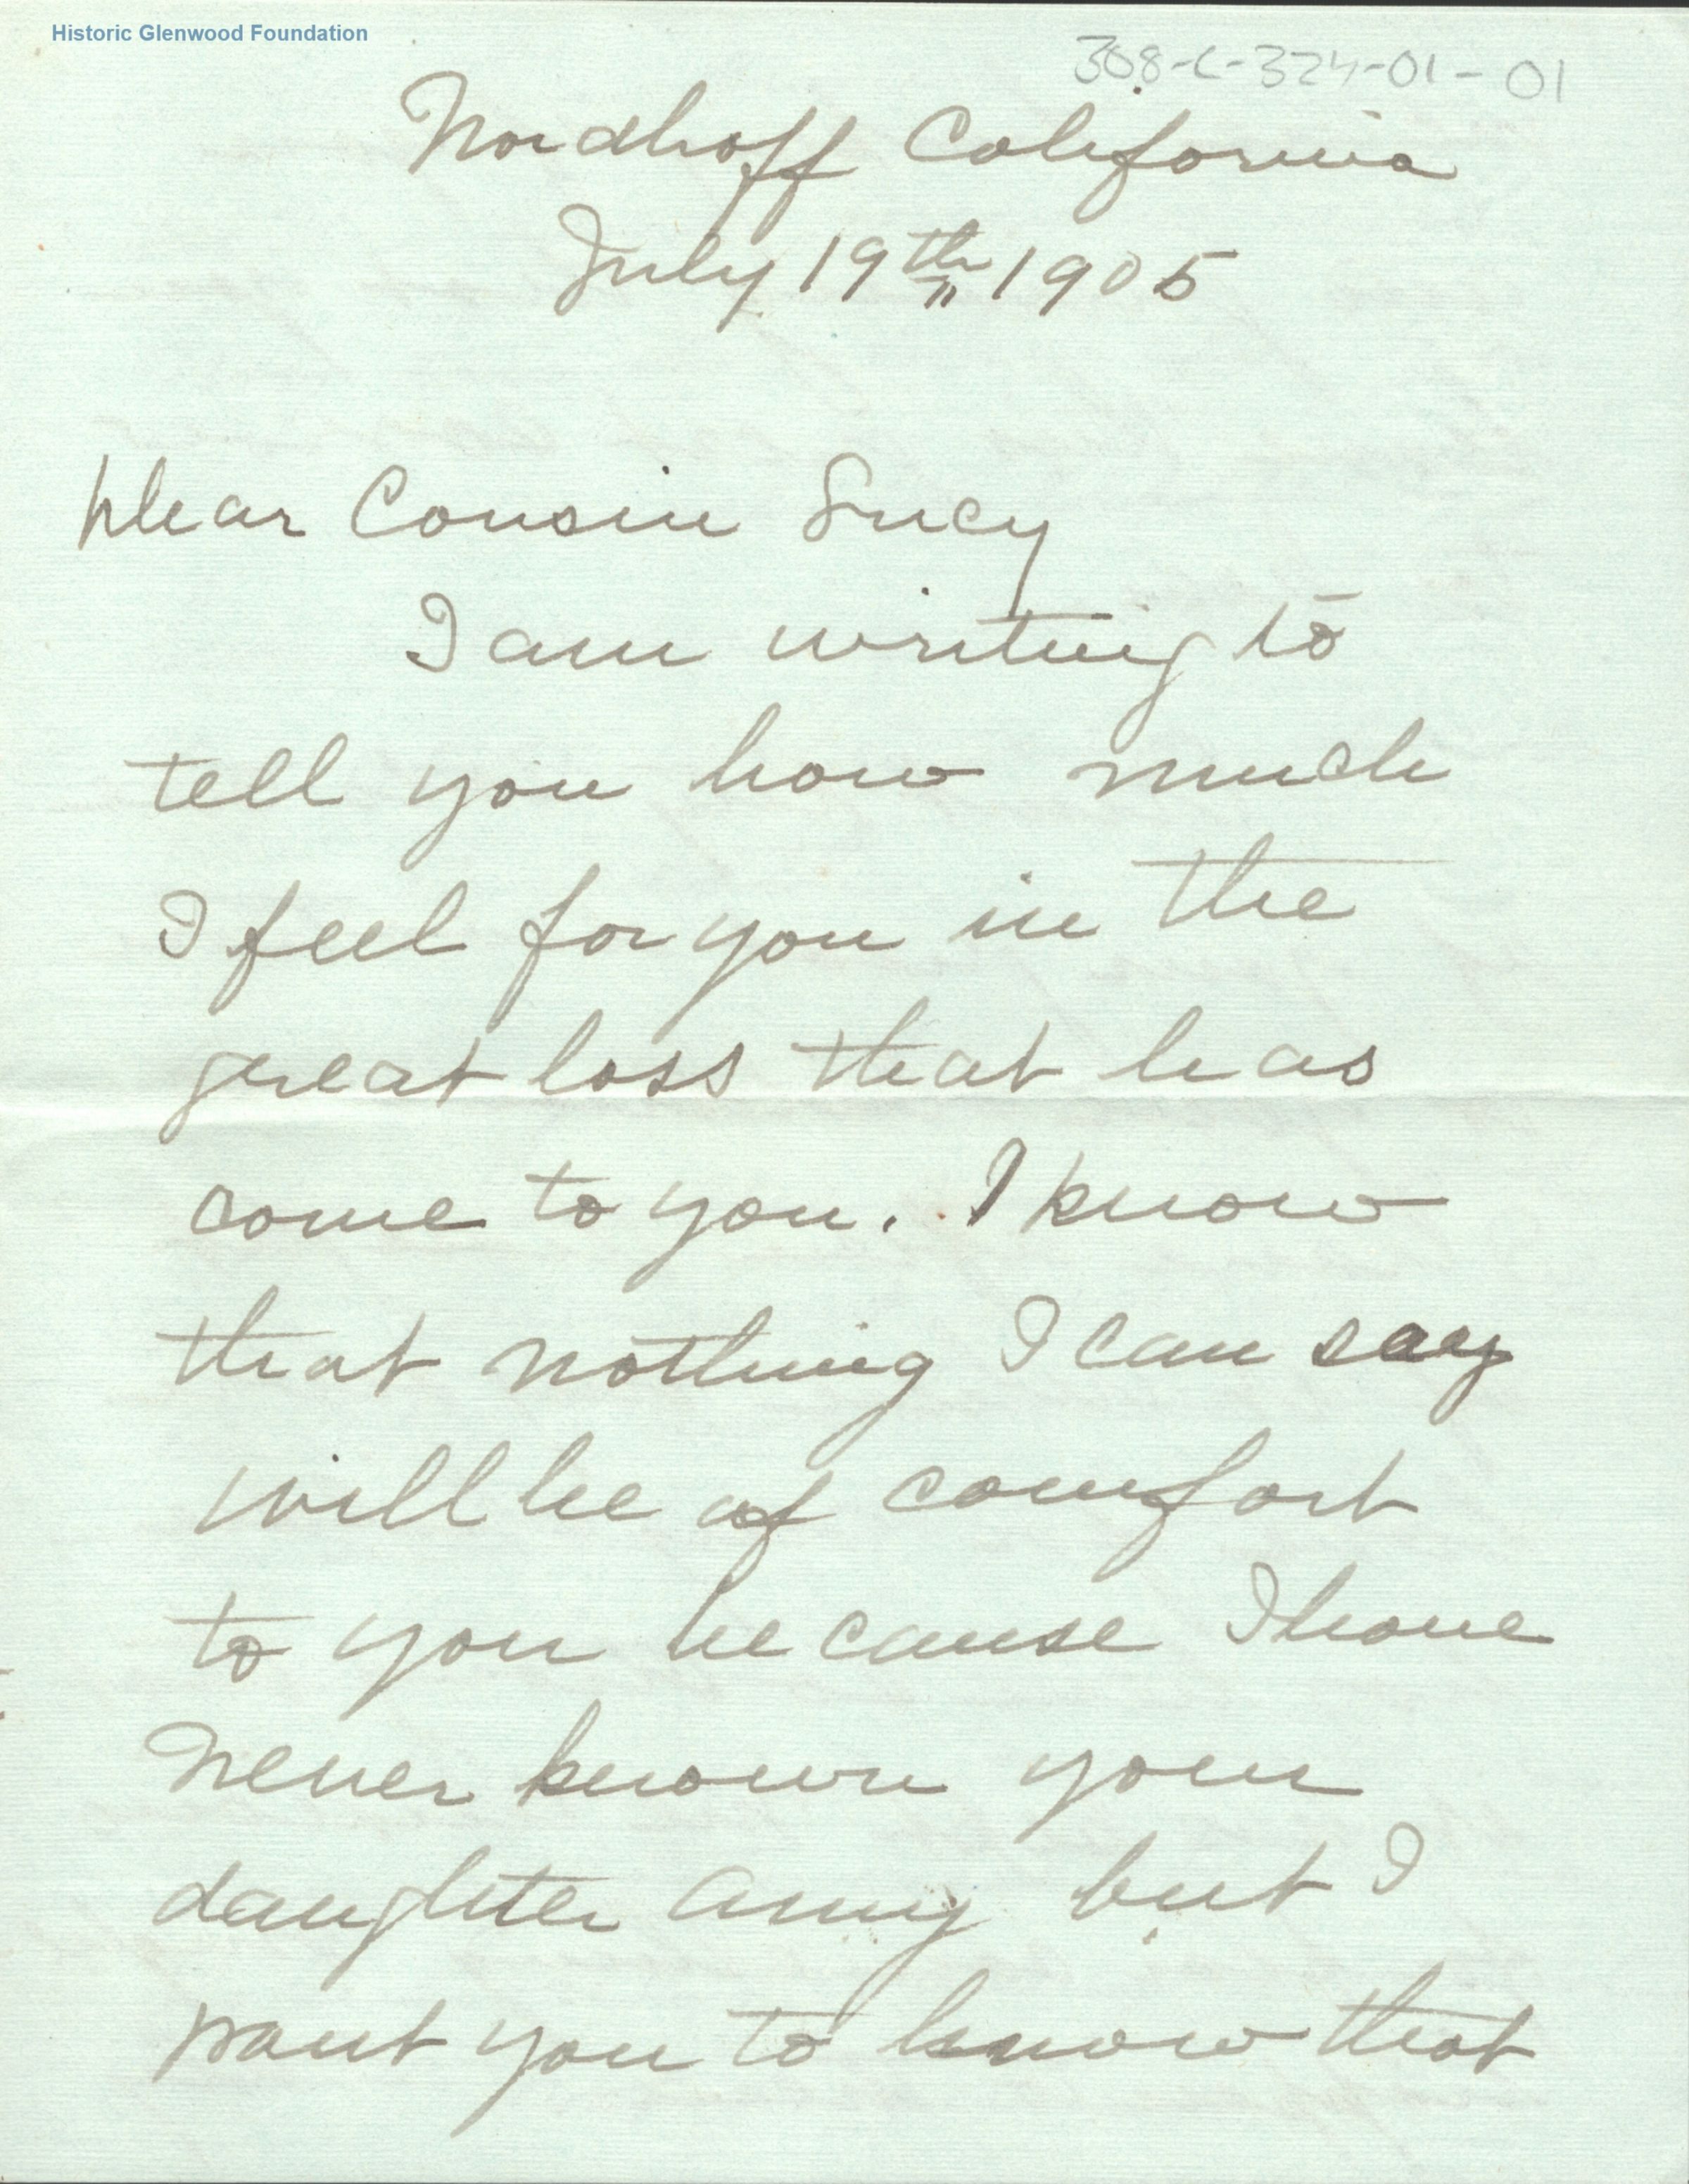 Historic Glenwood Foundation
308-C-324-01-01
Nordhoff California
July 19th 1905
Dear Cousin Lucy
I am writing to
tell you how much
I feel for you in the
great loss that has
come to you. I know
that nothing I can say
will be of comfort
to you because I have
never known your
daughter Amy but I
want you to know that